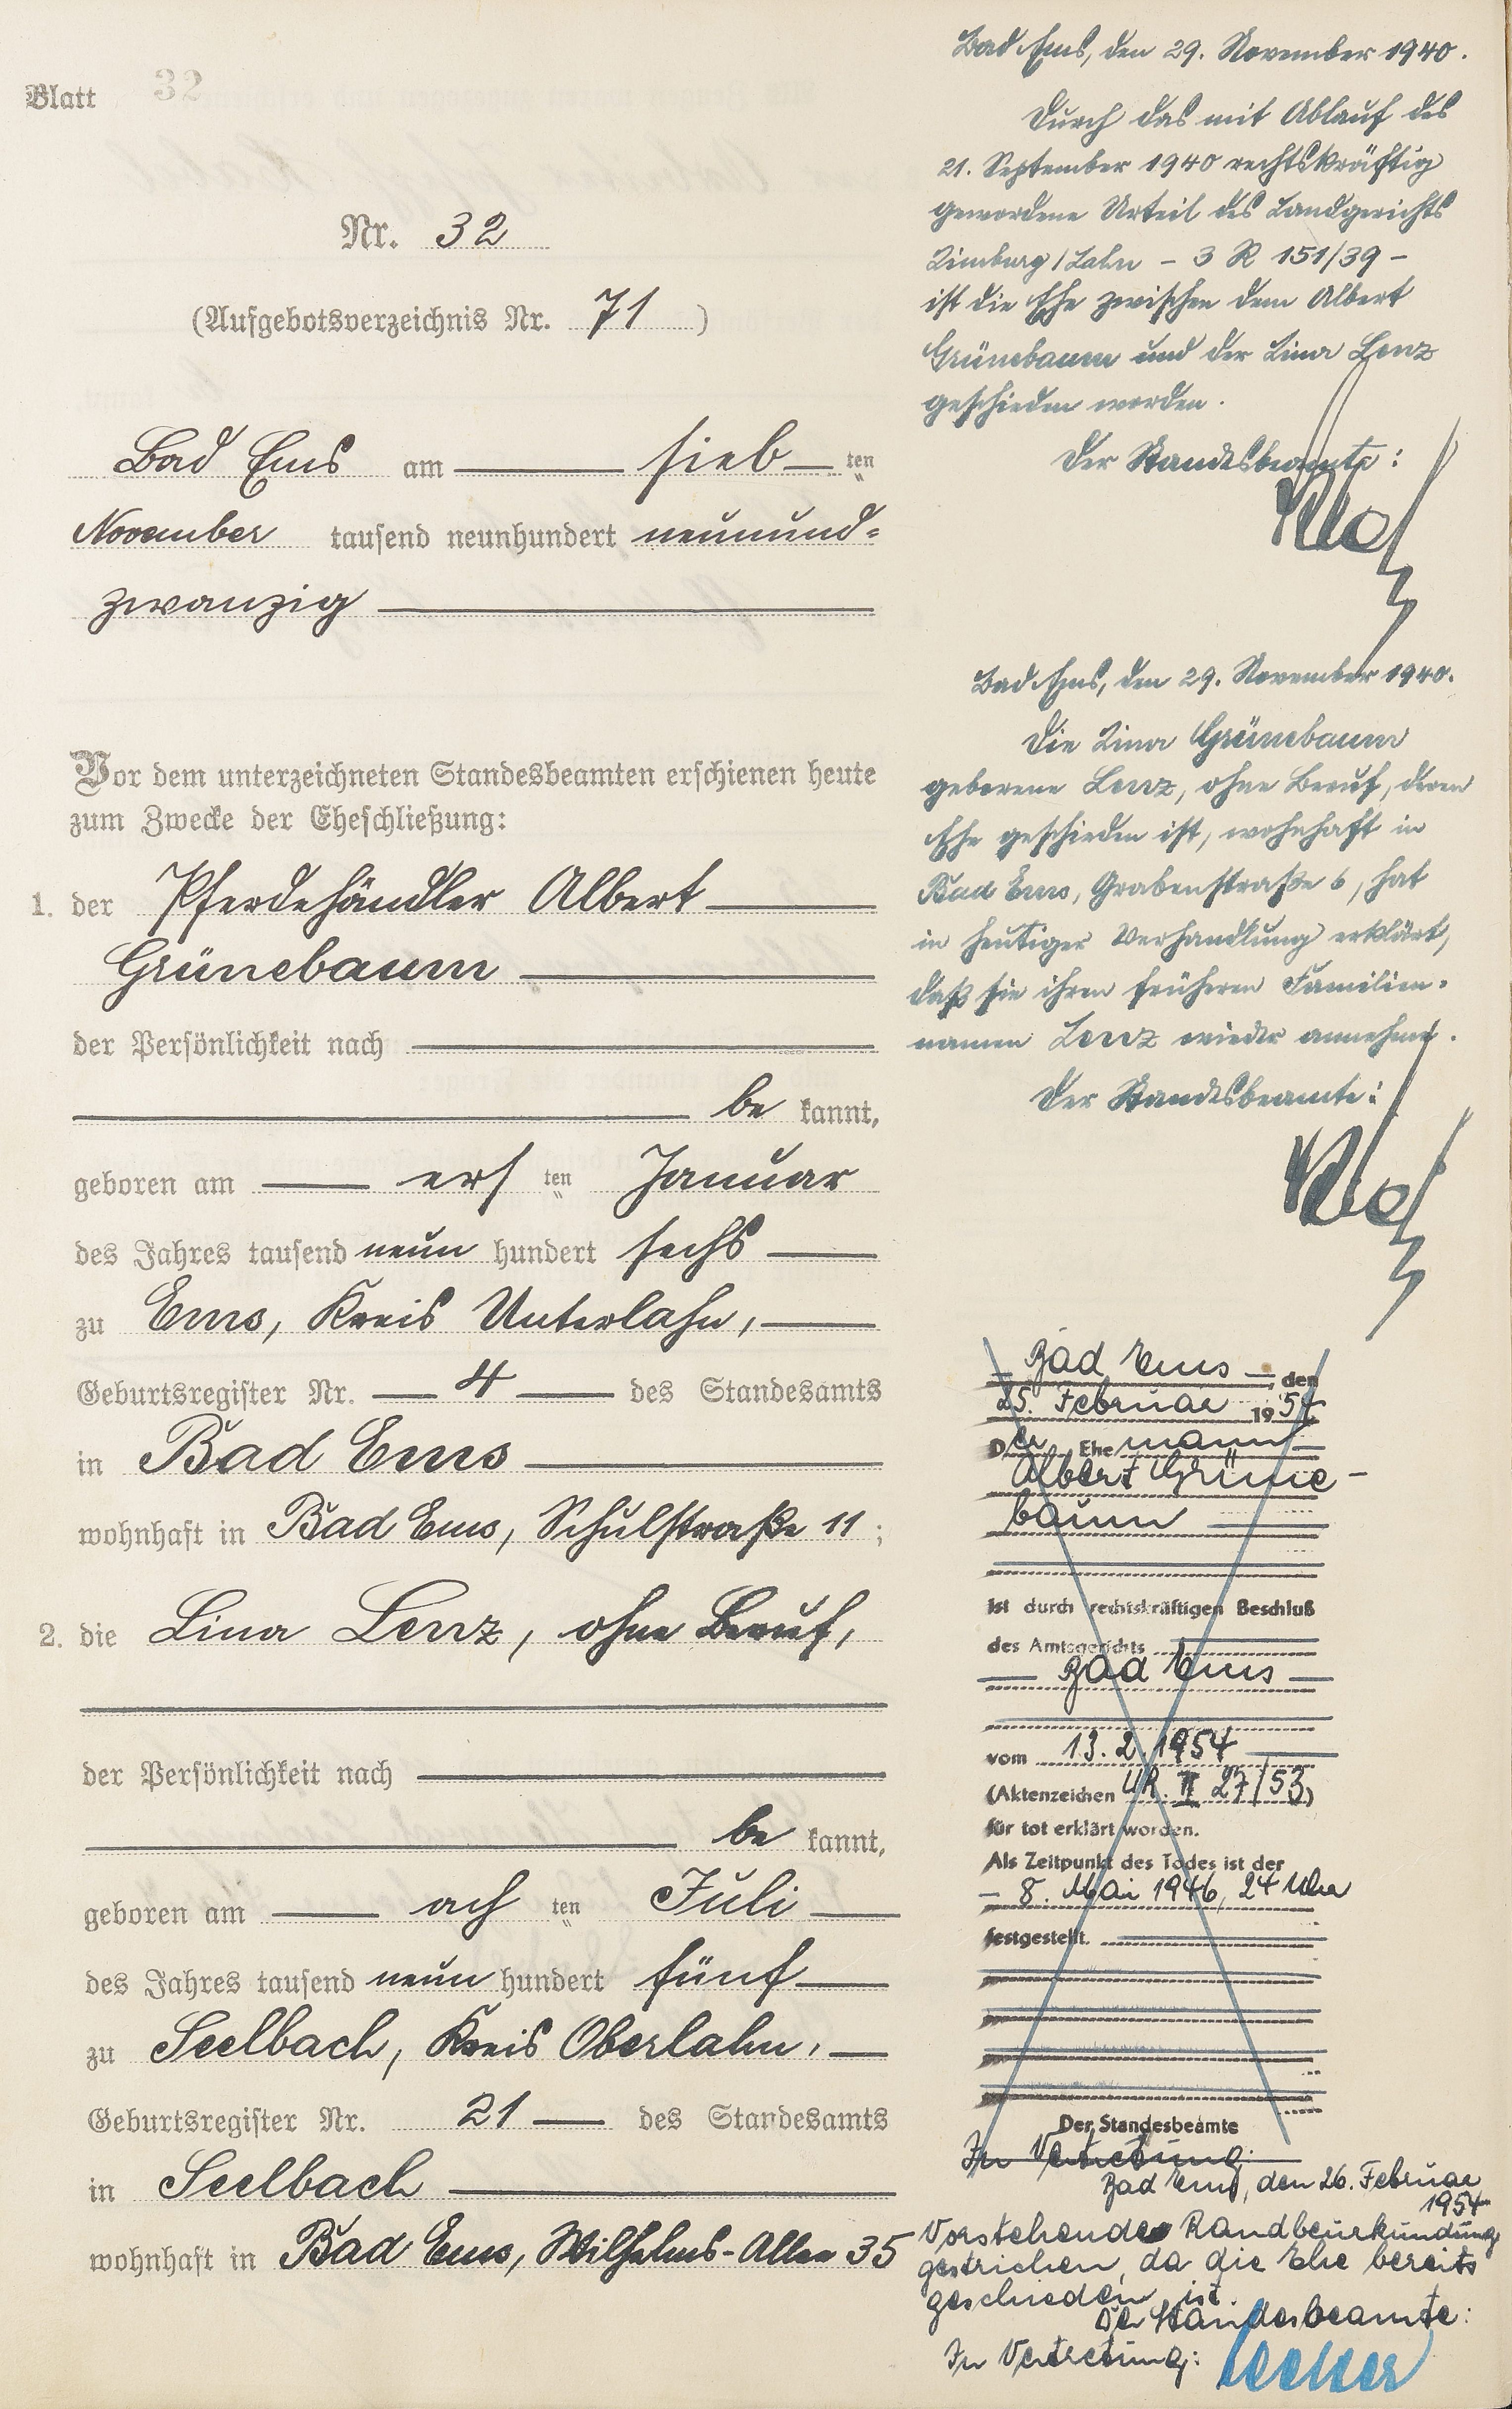 Blatt 32
Nr. 32
(Aufgebotsverzeichnis Nr. 71 )
Bad Ems am sieb ten
November tausend neunhundert neunund=
zwanzig
Vor dem unterzeichneten Standesbeamten erschienen heute
zum Zwecke der Eheschließung:
1. der Pferdehändler Albert
Grünebaum
der Persönlichkeit nach
be kannt,
geboren am ers ten Januar
des Jahres tausend neun hundert sechs
zu Ems, Kreis Unterlahn,
Geburtsregister Nr. 4 des Standesamts
in Bad Ems
wohnhaft in Bad Ems, Schulstraße 11 ;
2. die Lina Lenz, ohne Beruf,
der Persönlichkeit nach
be kannt,
geboren am ach ten Juli
des Jahres tausend neun hundert fünf
zu Seelbach, Kreis Oberlahn,
Geburtsregister Nr. 21 des Standesamts
in Seelbach
wohnhaft in Bad Ems, Wilhelms-Allee 35
Bad Ems, den 29. November 1940.
Durch das mit Ablauf des
21. September 1940 rechtskräftig
gewordene Urteil des Landgerichts
Limburg/Lahn - 3 R 151/39 -
ist die Ehe zwischen dem Albert
Grünebaum und der Lina Lenz
geschieden worden.
Der Standesbeamte:
Bad Ems, den 29. November 1940.
Die Lina Grünebaum
geborene Lenz, ohne Beruf, deren
Ehe geschieden ist, wohnhaft in
Bad Ems, Grabenstraße 6, hat
in heutiger Verhandlung erklärt,
daß sie ihren früheren Familien-
namen Lenz wieder annehme.
Der Standesbeamte:
Bad Ems, den
25. Februar 1954
Der Ehemann
Albert Grüne-
baum
ist durch rechtskräftigen Beschluß
des Amtsgerichts
Bad Ems
vom 13.2.1954
(Aktenzeichen UR. II 27/53)
für tot erklärt worden.
Als Zeitpunkt des Todes ist der
- 8. Mai 1946, 24 Uhr
festgestellt.
Der Standesbeamte
In Vertretung:
Bad Ems, den 26. Februar
1954
Vorstehende Randbeurkundung
gestrichen, da die Ehe bereits
geschieden ist.
Der Standesbeamte:
In Vertretung: